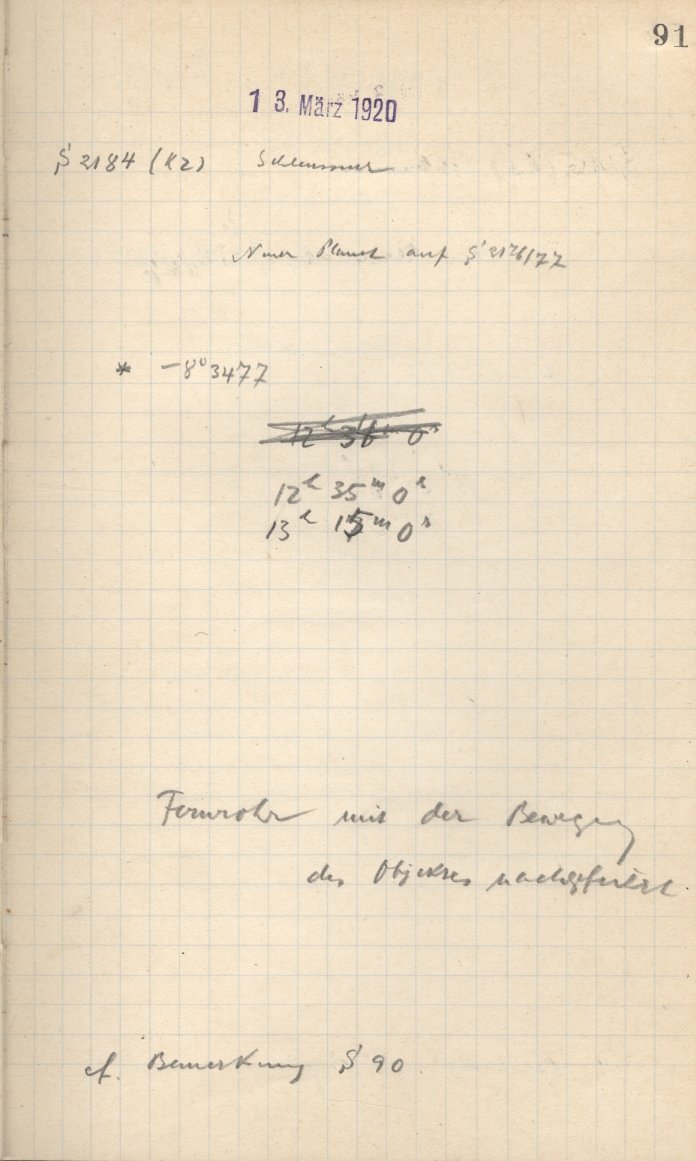 91
13. März 1920
§ 2184 (KZ) Schleussner
Neuer Planet auf § 2176/77
* -8° 3477
12h 36m 0s
12h 35m 0s
13h 15m 0s
Fernrohr mit der Bewegung
des Objektes nachgeführt
cf. Bemerkung § 90